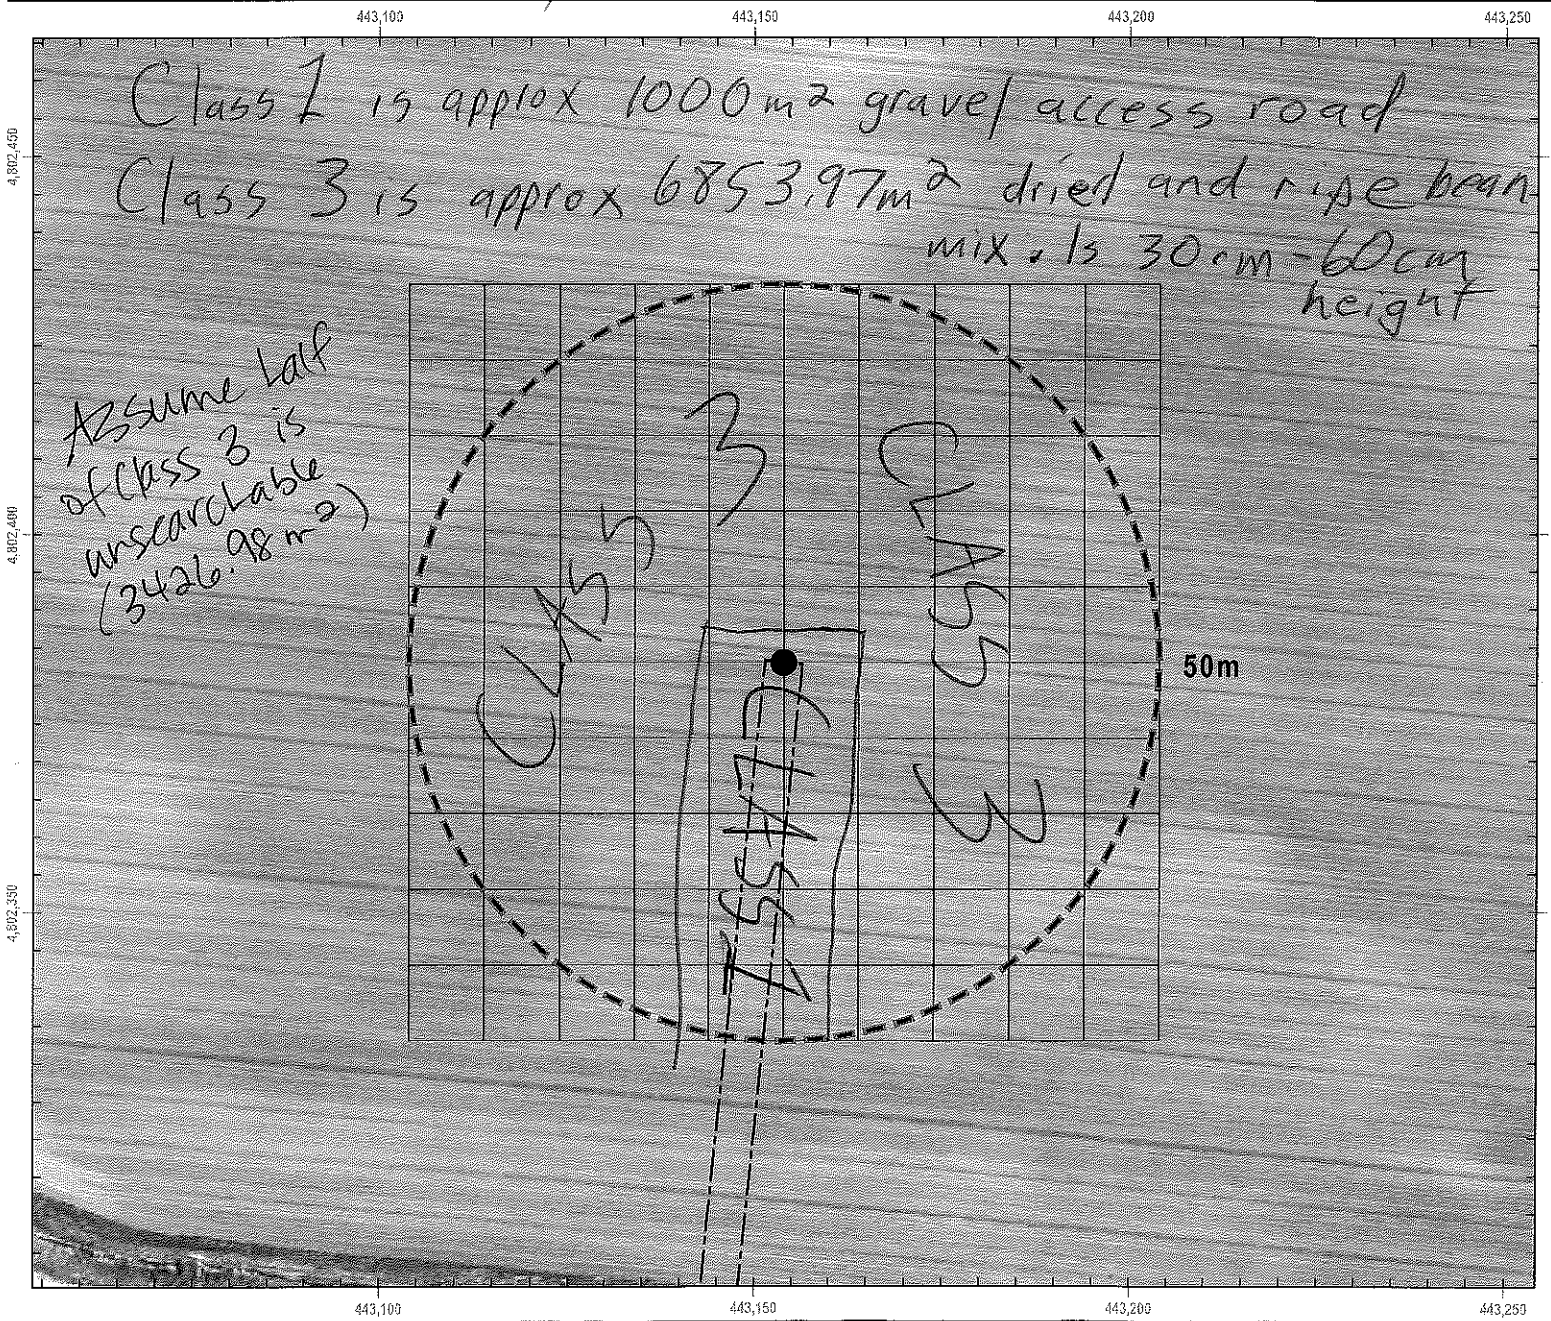 443,100 443,150 443,200 443,250
Class 1 is approx 1000m² gravel access road
4,802,450
Class 3 is approx 6853.97m² dried and ripe bean
mix. Is 30cm-60cm
height
Assume half
of class 3 is
unsearchable
(3426.98 m²)
4,802,400
CLASS 3
CLASS 3
50m
CLASS 1
4,802,350
443,100 443,150 443,200 443,250